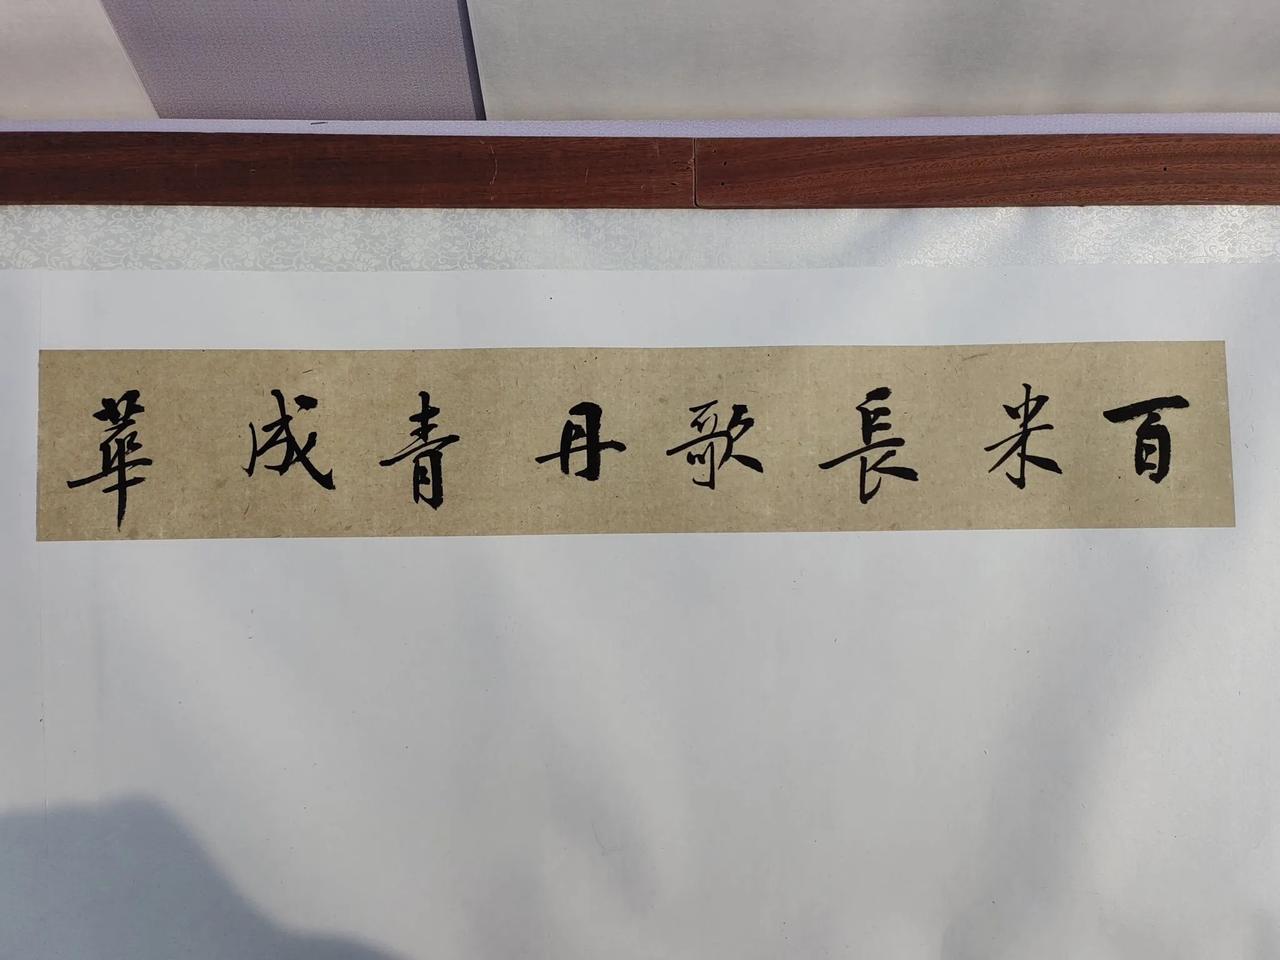 百米長歌丹青成華